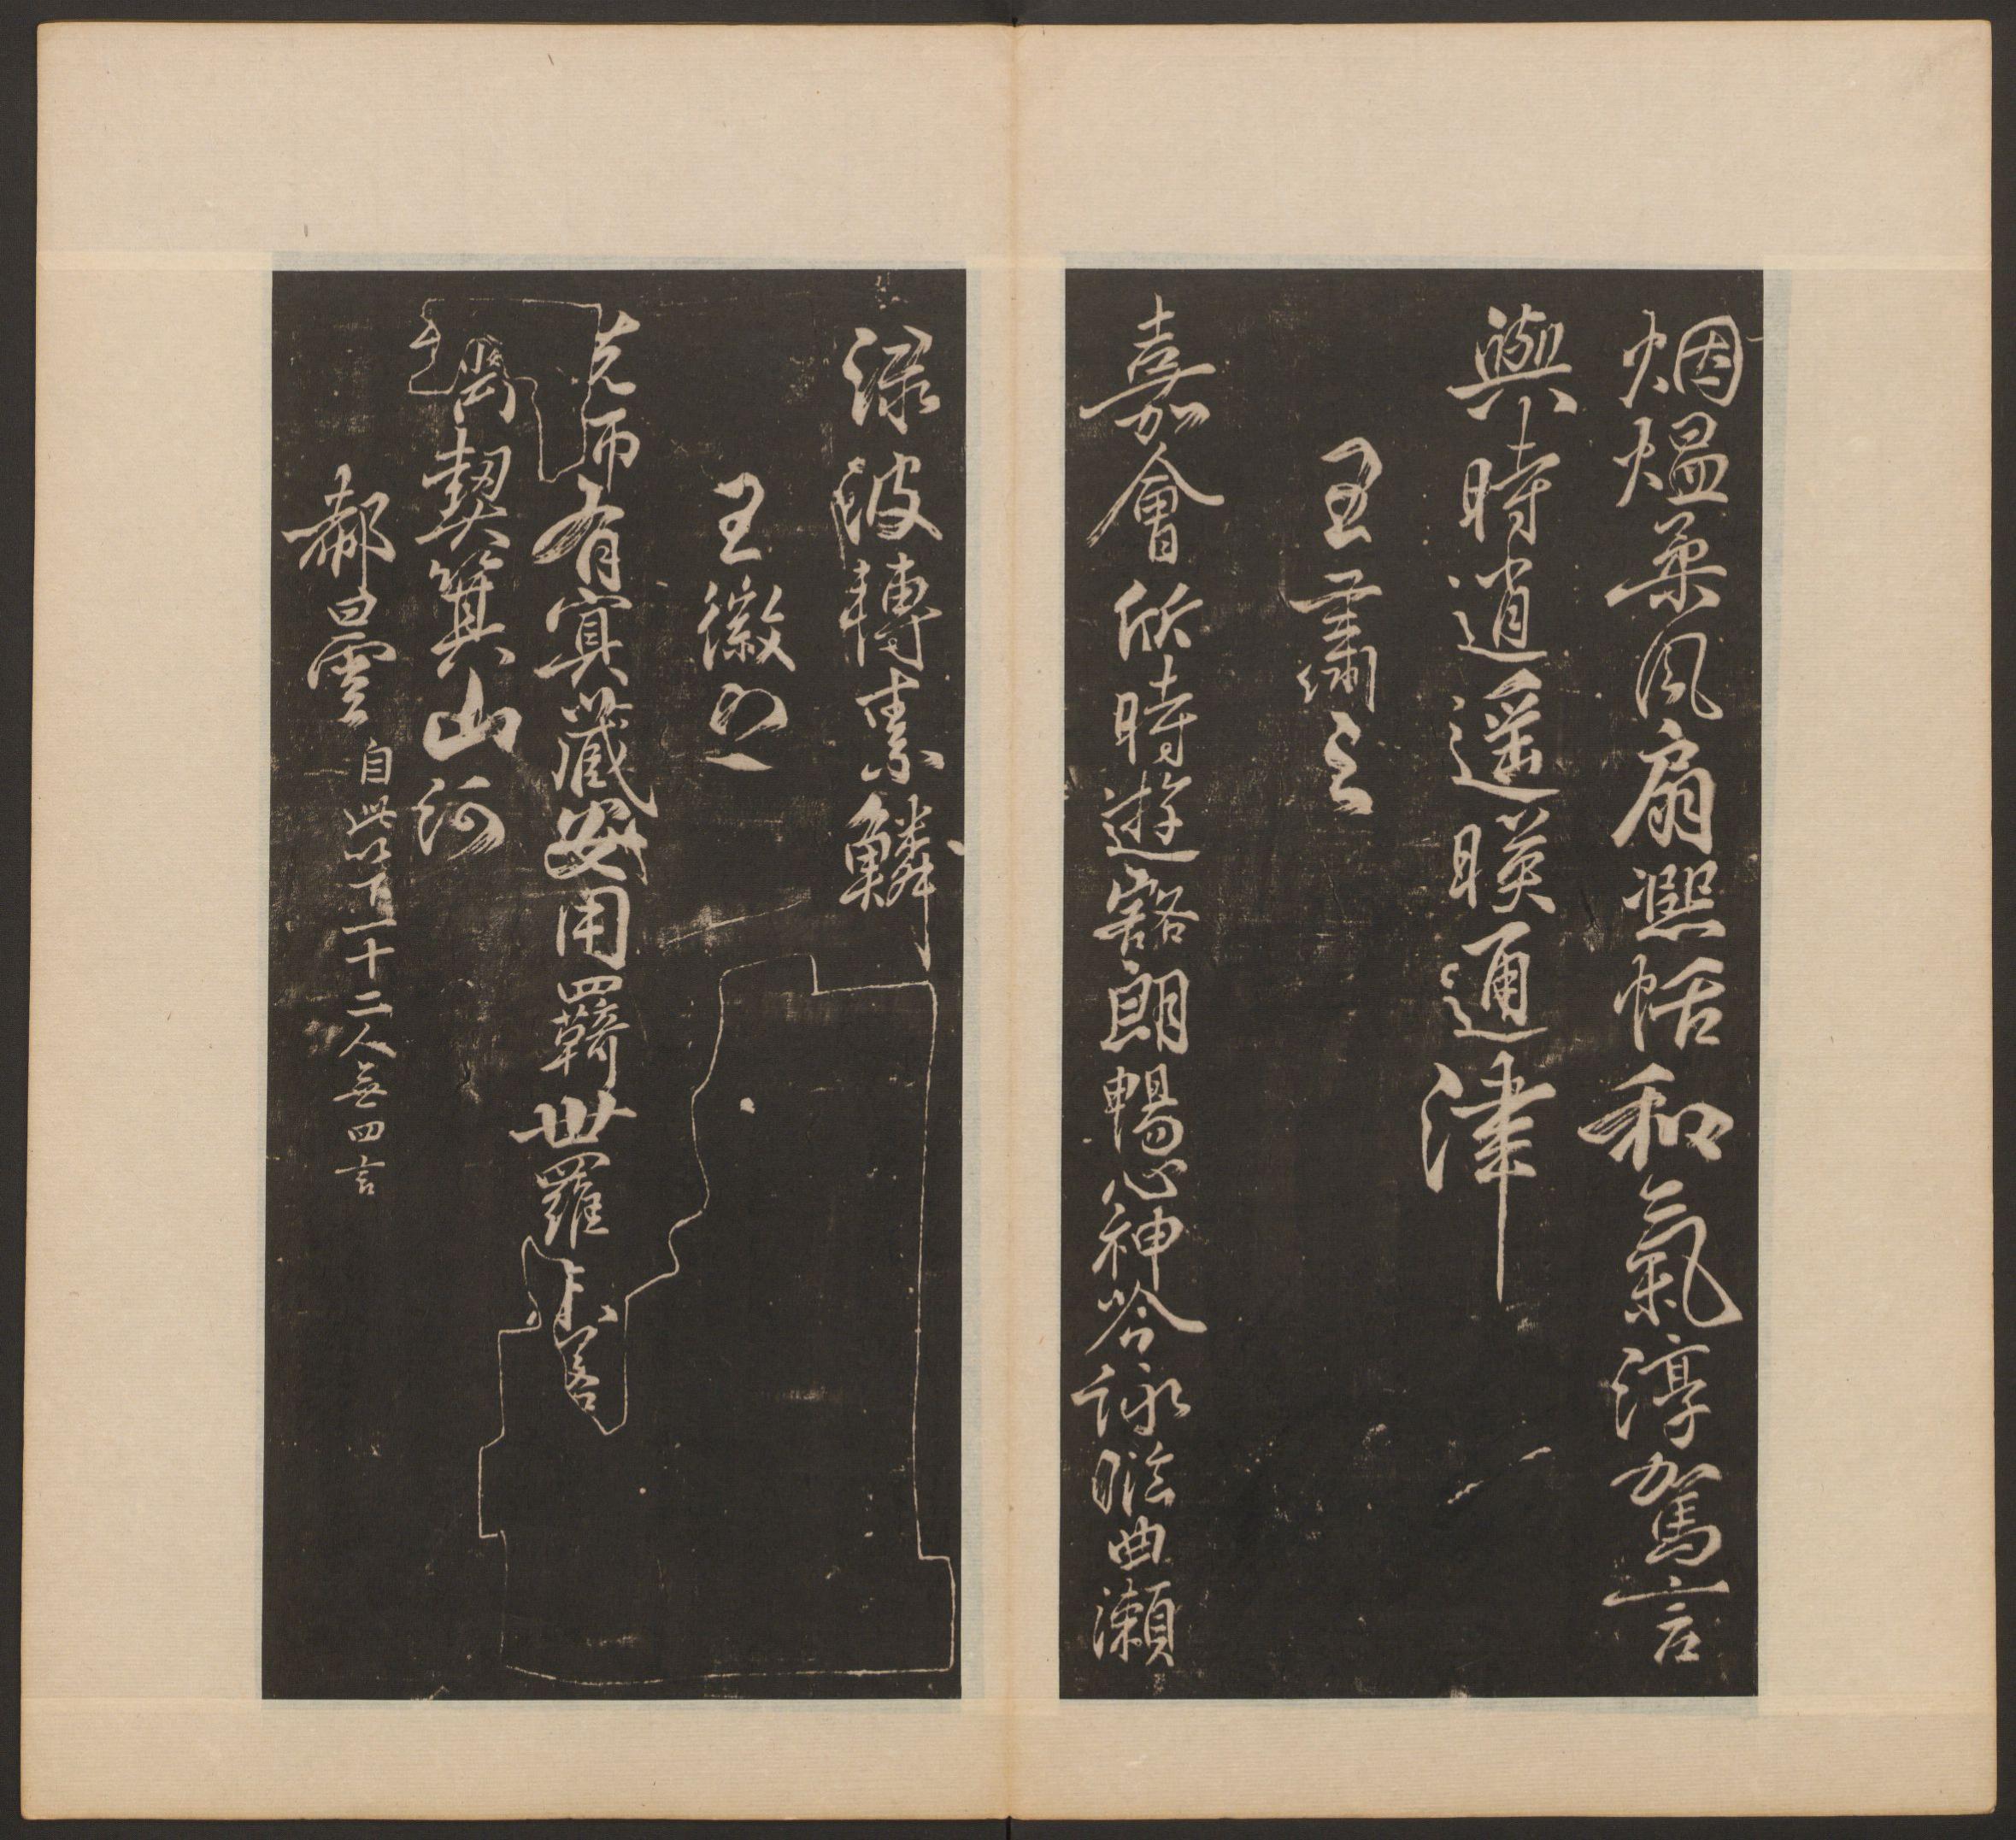 烟熅柔風扇熙怡和氣淳駕言
興時逍遥暎通津
王肅之
嘉會欣時遊豁朗暢心神吟詠臨曲瀨
渌波轉素鱗
王徽之
先師有冥藏安用羈世羅未若
齊契箕山阿
郗曇 自此以下一十二人無四言